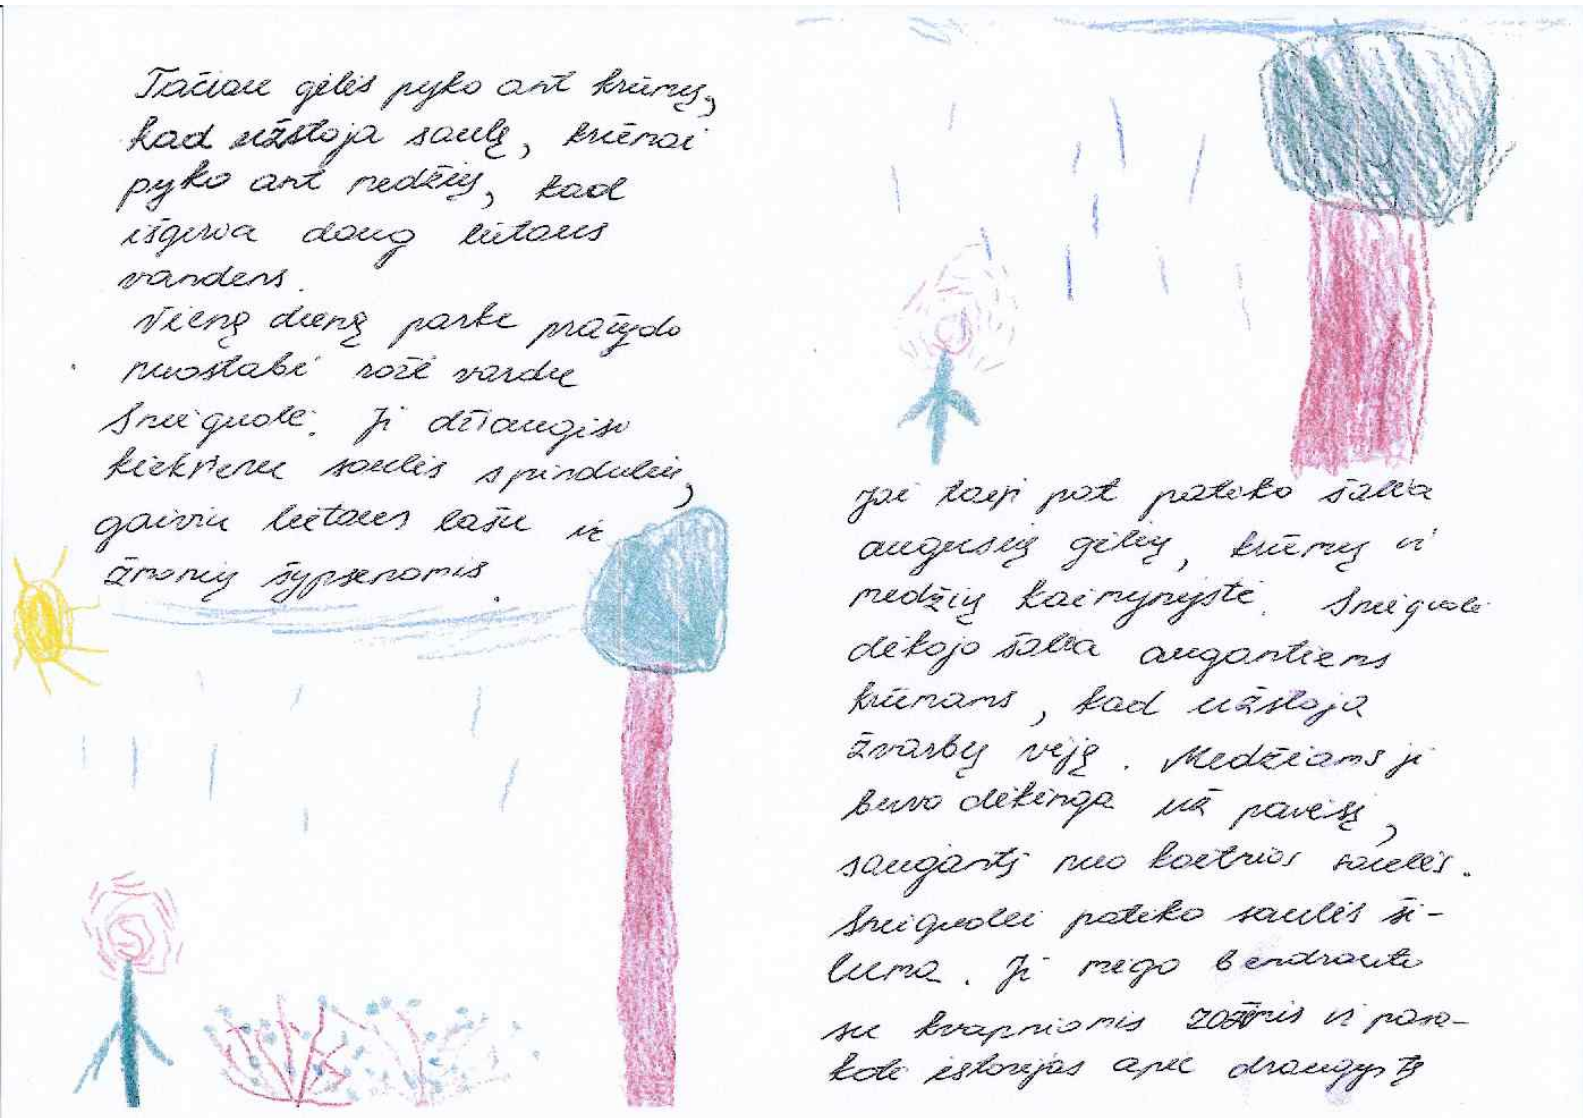 Tačiau gėlės pyko ant krūmų,
kad užstoja saulę, krūmai
pyko ant medžių, kad
išgeria daug lietaus
vandens.
Vieną dieną parke pražydo
nuostabi rožė vardu
Sneiguolė. Ji džiaugėsi
kiekvienu saulės spinduliu,
gaiviu lietaus lašu ir
žmonių šypsenomis.
Jai taip pat patiko šalia
augusių gėlių, krūmų ir
medžių kaimynystė. Sneiguolė
dėkojo šalia augantiems
krūmams, kad užstoja
žvarbų vėją. Medžiams ji
buvo dėkinga už pavėsį,
saugantį nuo kaitrios saulės.
Sneiguolei patiko saulės ši-
luma. Ji mėgo bendrauti
su kvapniomis rožėmis ir pasa-
koti istorijas apie draugystę